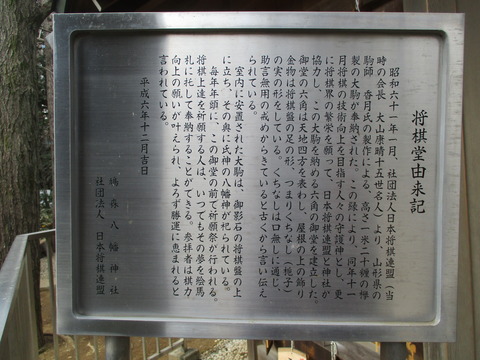 将棋堂由来記
昭和六十一年一月、社団法人日本将棋連盟（当
時の会長 大山康晴十五世名人）より、山形県の
駒師 香月氏の製作による、高さ一米二十糎の欅
製の大駒が奉納された。この縁により、同年十一
月将棋の技術向上を目指す人々の守護神とし、更
に将棋界の繁栄を願って、日本将棋連盟と神社が
協力し、この大駒を納める六角の御堂を建立した。
御堂の六角は天地四方を表わし、屋根の上の飾り
金物は将棋盤の足の形、つまりくちなし（梔子）
の実の形をしている。くちなしは口無しに通じ、
助言無用の戒めからきていると古くから言い伝え
られている。
室内に安置された大駒は、御影石の将棋盤の上
に立ち、その奥に氏神の八幡神が祀られている。
毎年年頭に、この御堂の前で祈願祭が行われる。
将棋上達を祈願する人は、いつでもその夢を絵馬
札に託して奉納することができる。参拝者は棋力
向上の願いが叶えられ、よろず勝運に恵まれると
言われている。
平成六年十二月吉日
鳩森八幡神社
社団法人 日本将棋連盟